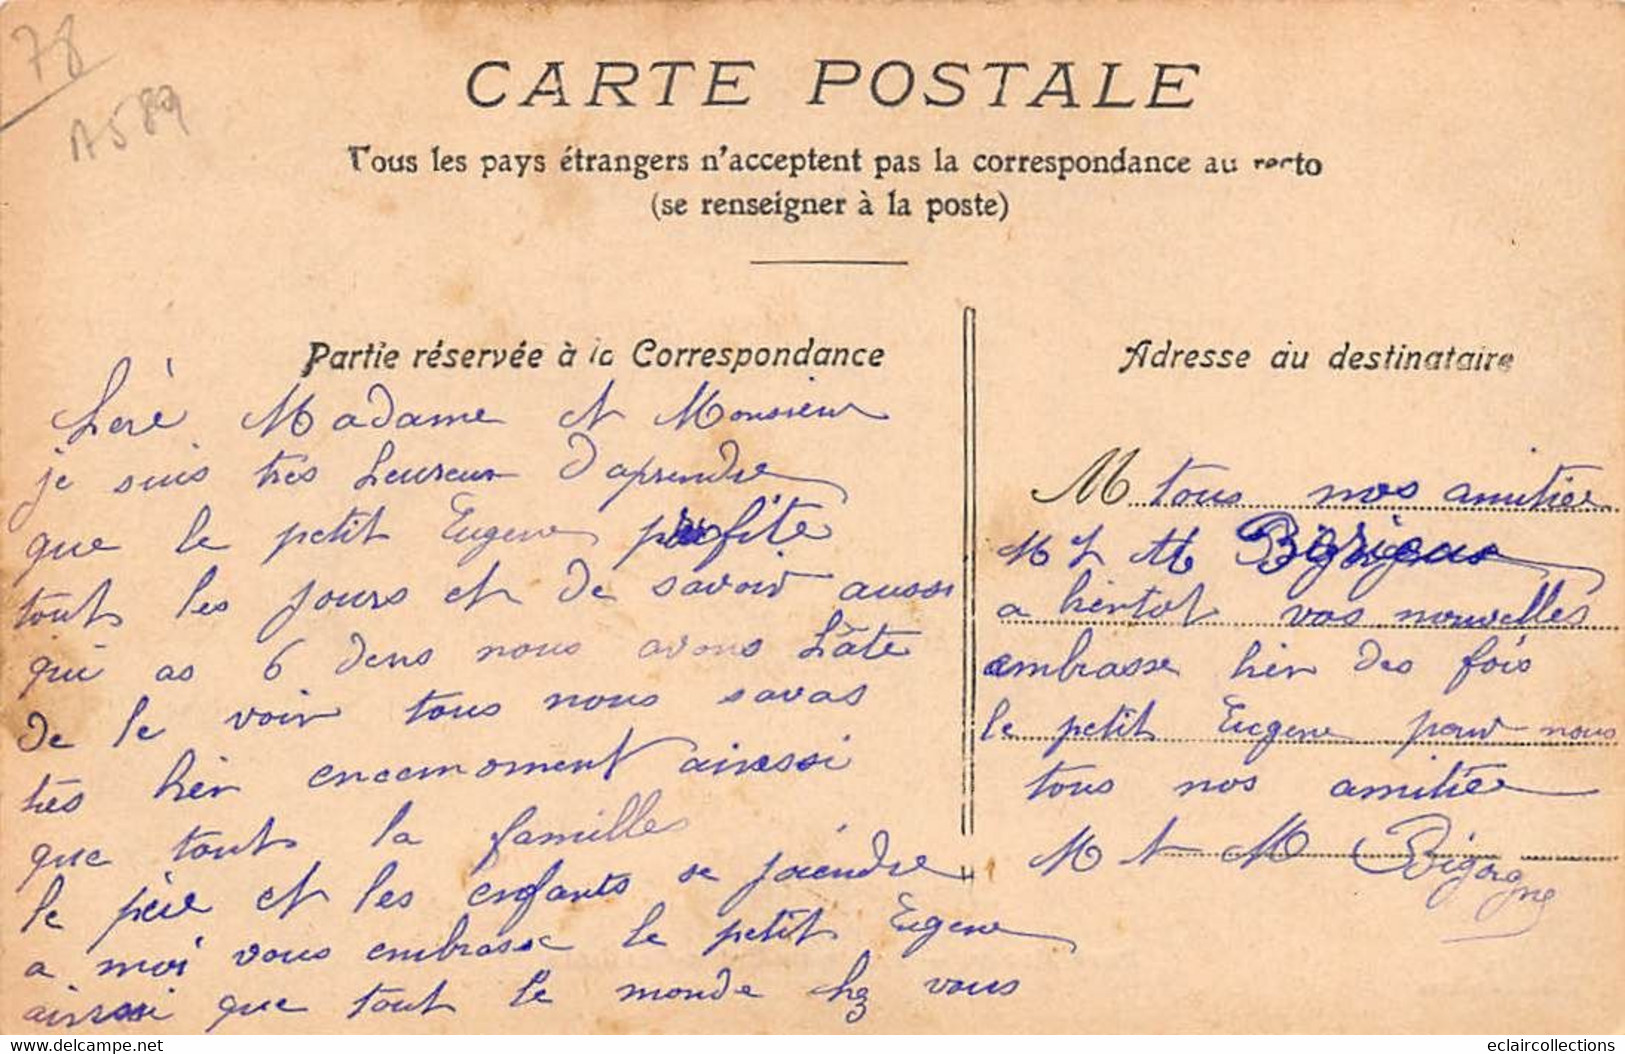 78
A589
CARTE POSTALE
Tous les pays étrangers n'acceptent pas la correspondance au recto
(se renseigner à la poste)
Partie réservée à la Correspondance
Adresse du destinataire
Madame et Monsieur
je suis tres heureux d'aprendre
que le petit Eugene profite
tout les jours et de savoir aussi
qui as 6 dens nous avons hâte
de le voir tous nous savas
tres hien encemoment ainssi
que tout la famille
le père et les enfants se joindre
a moi vous embrasse le petit Eugene
ainssi que tout le monde chez vous
M tous nos amitiée
M et M
a bientot vos nouvelles
embrasse bien des fois
le petit Eugene pour nous
tous nos amitiée
M et M Bigorgne
delcampe.net
eclaircollections